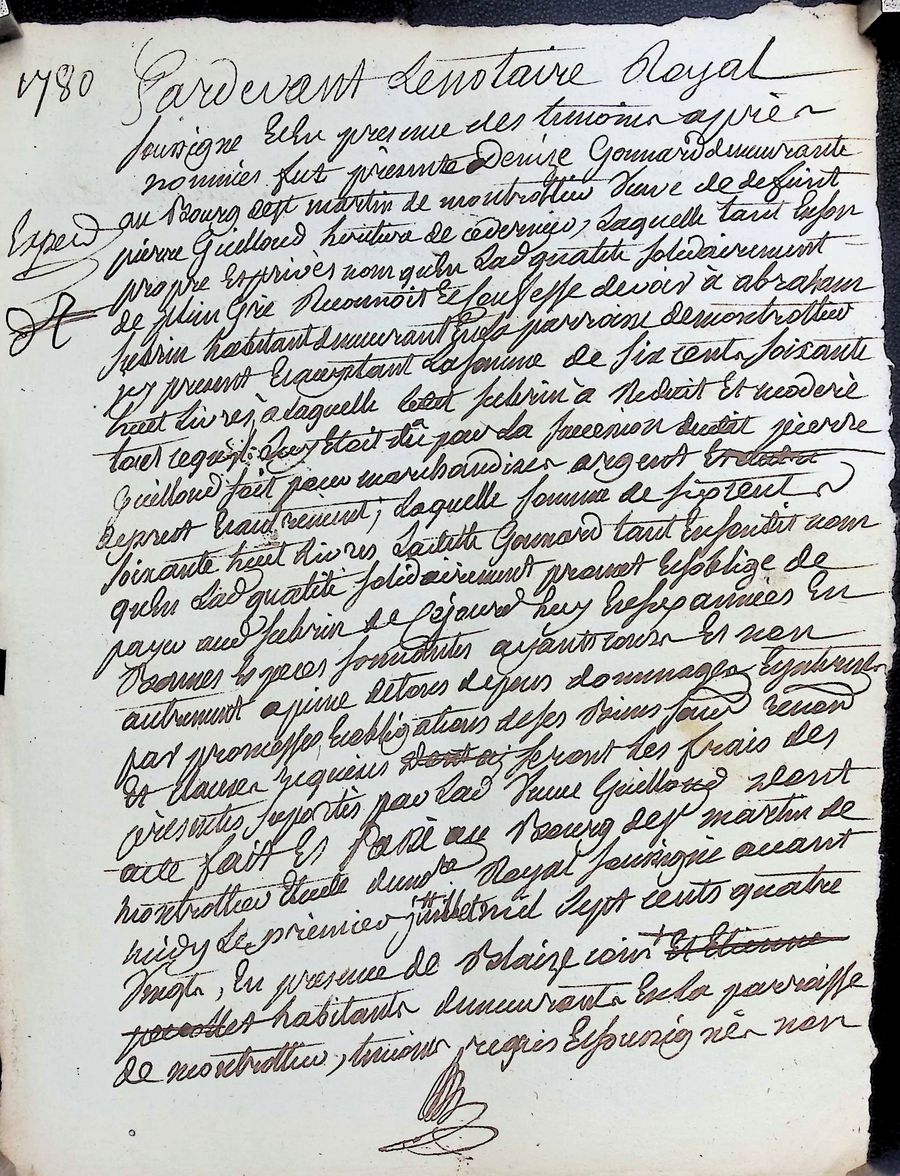 1780
Pardevant Le notaire Royal
soussigné Et En presence des temoins apprès
nommés fut présente Denize Gonnard demeurante
au Bourg de st martin de montrottier Veuve de defunt
Exped
pierre Guilloud heritiere de ce dernier, Laquelle tant En son
propre Et privés nom qu'En Lad qualité solidairement
de plein Gré Reconnoit Et Confesse devoir à abraham
subrin habitant demeurant En la parroisse de montrottier
icy present Et acceptant La somme de six cents soixante
huit Livres, a laquelle Ledit subrin à Reduit Et moderé
tout ce qu'il Luy Etait dû par La succession dudit pierre
Guilloud soit pour marchandizes argent
de prest Et autrement, Laquelle somme de six cent
soixante huit Livres Ladette Gonnard tant En soudit nom
qu'En Lad qualité solidairement promet Et s'oblige de
payer aud subrin de Cejourd huy En six années En
Bonnes Especes sonnantes ayants cours Et non
autrement a peine de tous depens dommages Et interests
par promesses, Et obligations de ses Biens soud renond
Et clauses requises dont a, seront Les frais des
présentes suportés par Lad Veuve Guilloud dont
acte fait Et Passé au Bourg de st martin de
montrottier Etude du nore Royal soussigné avant
midy Le premier juillet mil sept cents quatre
Vingt, En presence de Blaize Et Etienne
habitants demeurants En la parroisse
de montrottier, temoins requis Et soussignés non